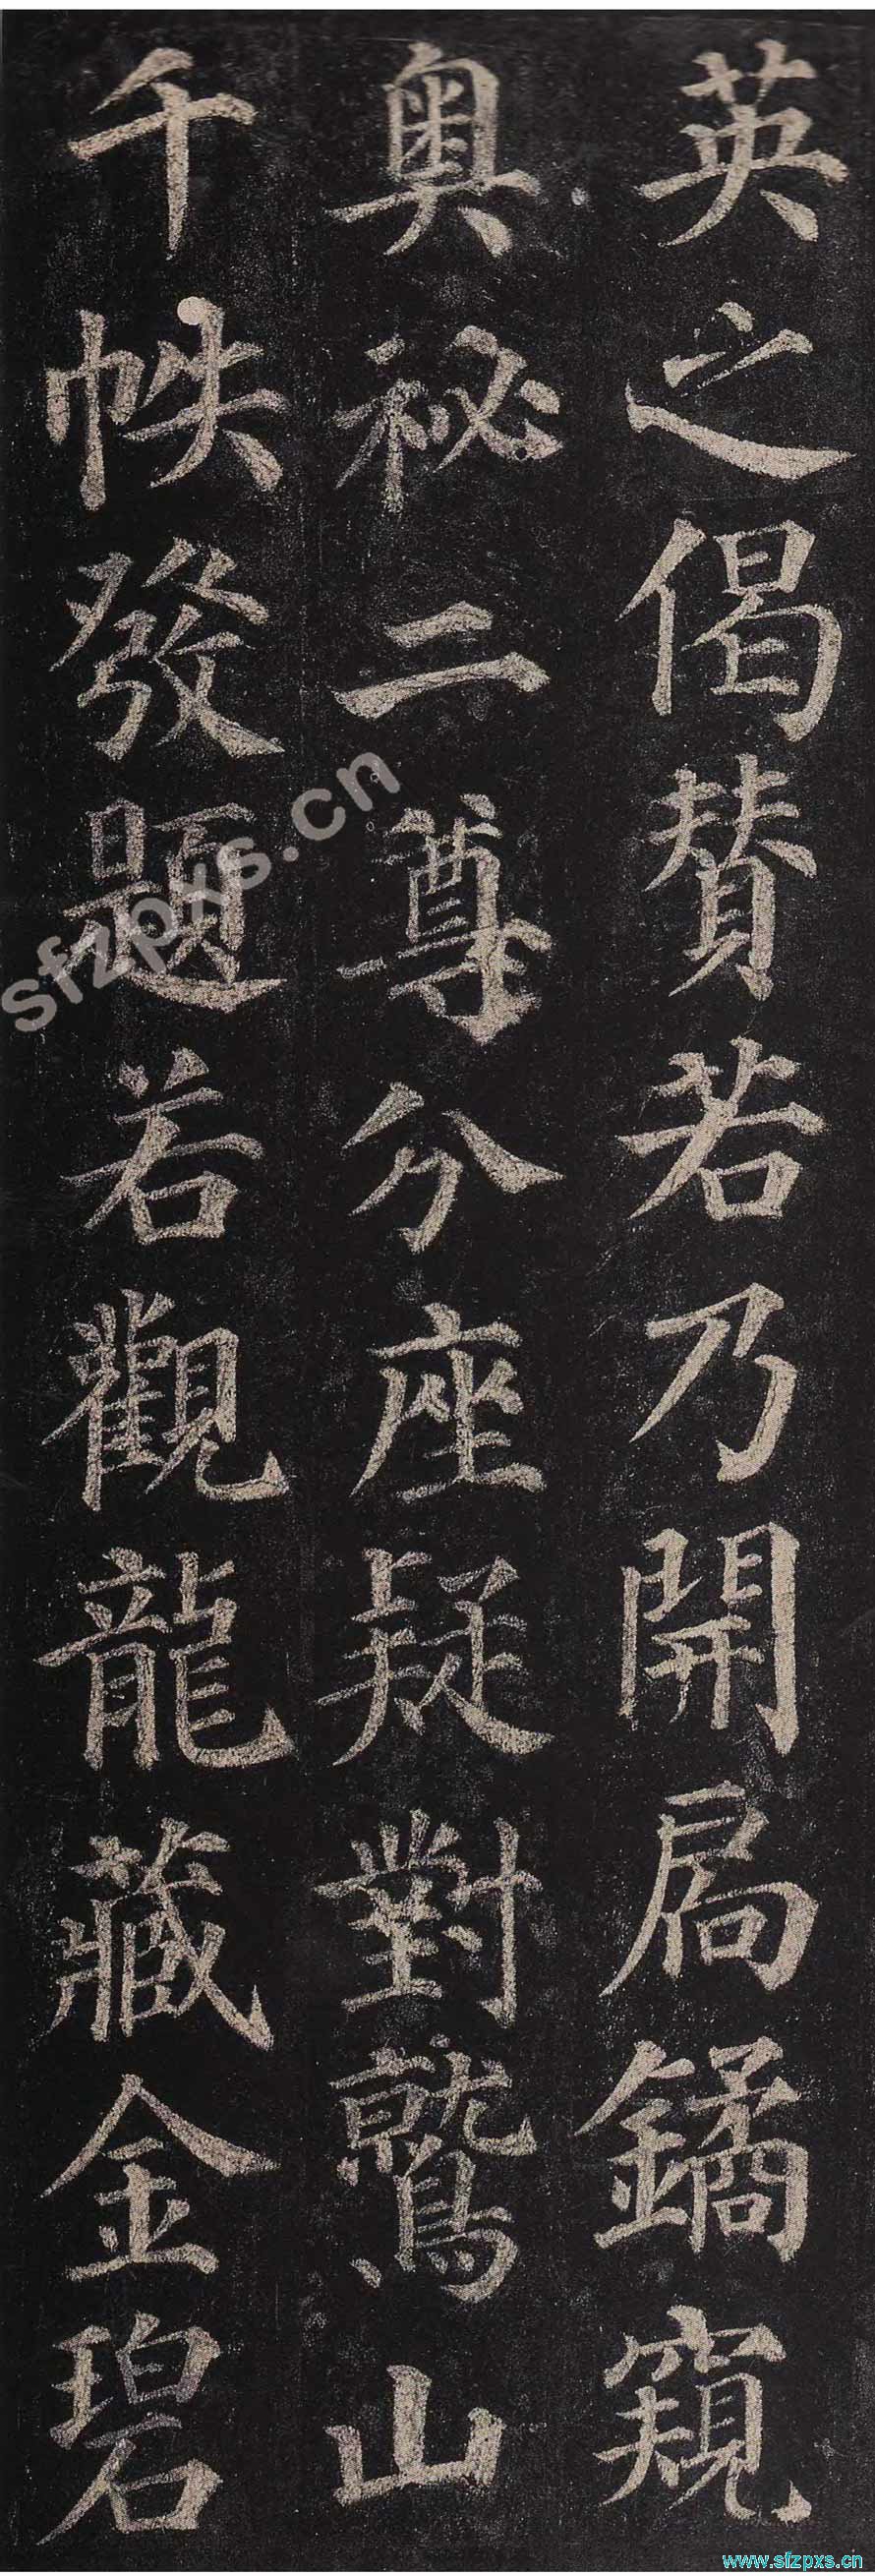 英之偈賛若乃開扄鐍窺
奥祕二尊分座疑對鷲山
千帙發題若觀龍藏金碧
sfzpxs.cn
www.sfzpxs.cn